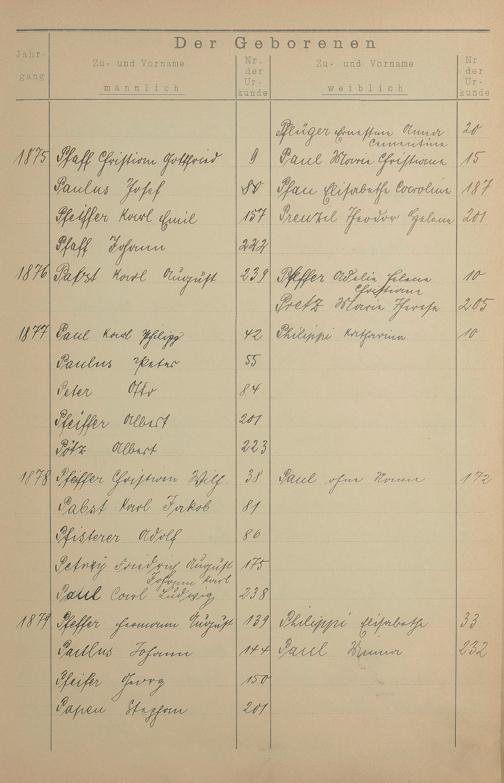 Der Geborenen
Jahr-
gang
Zu- und Vorname
männlich
Nr.
der
Ur-
kunde
Zu- und Vorname
weiblich
Nr
der
Ur-
kunde
Pflüger Ernestine Anna 20
Clementine
1875 Pfaff Christian Gottfried 9 Paul Marie Christiane 15
Paulus Josef 80 Pfau Elisabethe Caroline 187
Pfeiffer Karl Emil 157 Theodor Helene 201
Pfaff Johann 222
1876 Pabst Karl August 239 Pfeffer Adelie Helene 10
Christiane
Pretz Marie Therese 205
1877 Paul Karl Philipp 42 Philippi Katharina 10
Paulus Peter 55
Peter Otto 84
Pfeiffer Albert 201
Pötz Albert 223
1878 Pfeffer Christian Wilh. 38 Paul ohne Namen 172
Pabst Karl Jakob 81
Pfisterer Adolf 86
Petry Friedrich August 175
Johann Karl
Paul Carl Ludwig 238
1879 Pfeffer Hermann August 139 Philippi Elisabethe 33
Paulus Johann 144 Paul 232
Pfeifer Georg 150
Papen Stephan 201